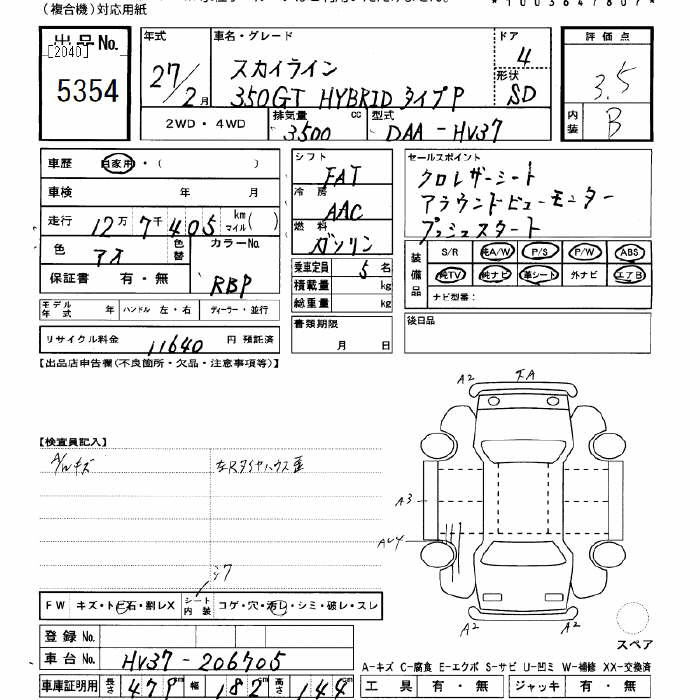 (複合機)対応用紙
*1003647807*
出品No.
[2040]
5354
年式
27/2月
車名・グレード
スカイライン
350GT HYBRID タイプP
ドア
4
形状
SD
評価点
3.5
内装
B
2WD・4WD
排気量
3500
cc
型式
DAA-HV37
車歴
自家用・( )
車検
年 月
走行
12万7千405
km
マイル( )
色
アオ
色替
カラーNo.
RBP
保証書
有・無
モデル年式
年
ハンドル 左・右
ディーラー・並行
リサイクル料金
11640
円 預託済
シフト
FAT
冷房
AAC
燃料
ガソリン
乗車定員
5名
積載量
kg
総重量
kg
書類期限
月 日
セールスポイント
クロレザーシート
アラウンドビューモニター
プッシュスタート
装備品
S/R
純A/W
P/S
P/W
ABS
純TV
純ナビ
革シート
外ナビ
エアB
ナビ型番:
後日品
[出品店申告欄(不良箇所・欠品・注意事項等)]
【検査員記入】
A/Wキズ
左Rタイヤハウス歪
A2
A2
A3
A2
A2
シワ
FW
キズ・トビ石・割レX
シート内装
コゲ・穴・汚レ・シミ・破レ・スレ
登録No.
車台No.
HV37-206705
車庫証明用
長さ
479
cm
幅
182
cm
高さ
144
cm
スペア
A-キズ C-腐食 E-エクボ S-サビ U-凹ミ W-補修 XX-交換済
工具
有・無
ジャッキ
有・無